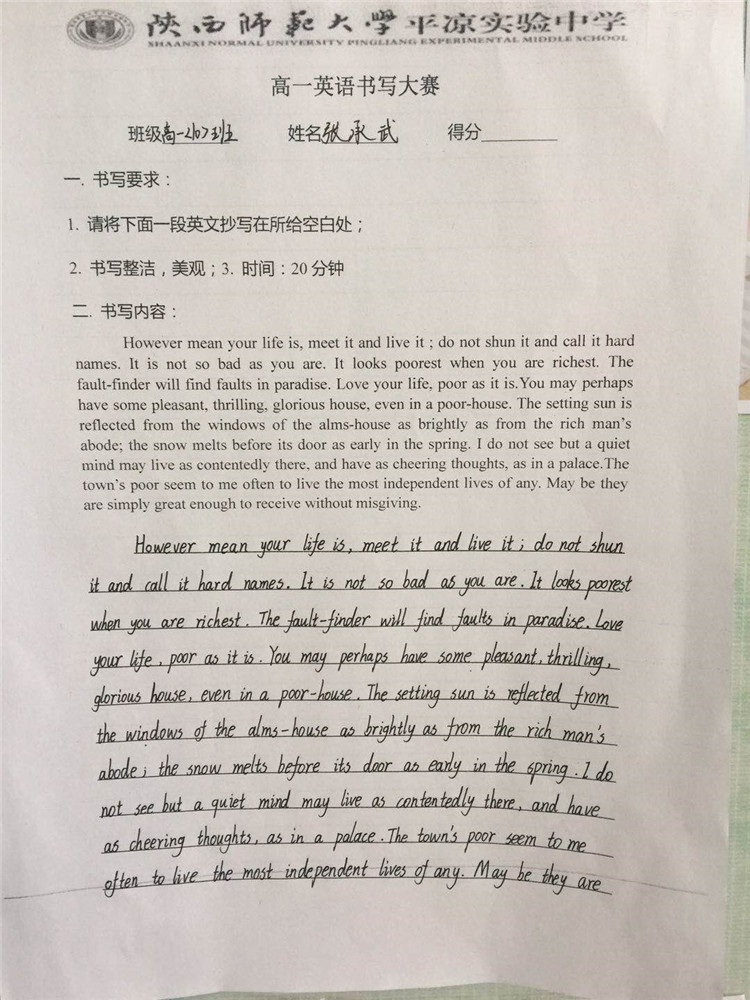 陕西师范大学平凉实验中学
SHAANXI NORMAL UNIVERSITY PINGLIANG EXPERIMENTAL MIDDLE SCHOOL
高一英语书写大赛
班级高一<10>班 姓名张承武 得分
一. 书写要求：
1. 请将下面一段英文抄写在所给空白处；
2. 书写整洁，美观；3. 时间：20分钟
二. 书写内容：
However mean your life is, meet it and live it ; do not shun it and call it hard
names. It is not so bad as you are. It looks poorest when you are richest. The
fault-finder will find faults in paradise. Love your life, poor as it is.You may perhaps
have some pleasant, thrilling, glorious house, even in a poor-house. The setting sun is
reflected from the windows of the alms-house as brightly as from the rich man's
abode; the snow melts before its door as early in the spring. I do not see but a quiet
mind may live as contentedly there, and have as cheering thoughts, as in a palace.The
town's poor seem to me often to live the most independent lives of any. May be they
are simply great enough to receive without misgiving.
However mean your life is, meet it and live it ; do not shun
it and call it hard names. It is not so bad as you are. It looks poorest
when you are richest. The fault-finder will find faults in paradise. Love
your life, poor as it is. You may perhaps have some pleasant, thrilling,
glorious house, even in a poor-house. The setting sun is reflected from
the windows of the alms-house as brightly as from the rich man's
abode; the snow melts before its door as early in the spring. I do
not see but a quiet mind may live as contentedly there, and have
as cheering thoughts, as in a palace. The town's poor seem to me
often to live the most independent lives of any. May be they are